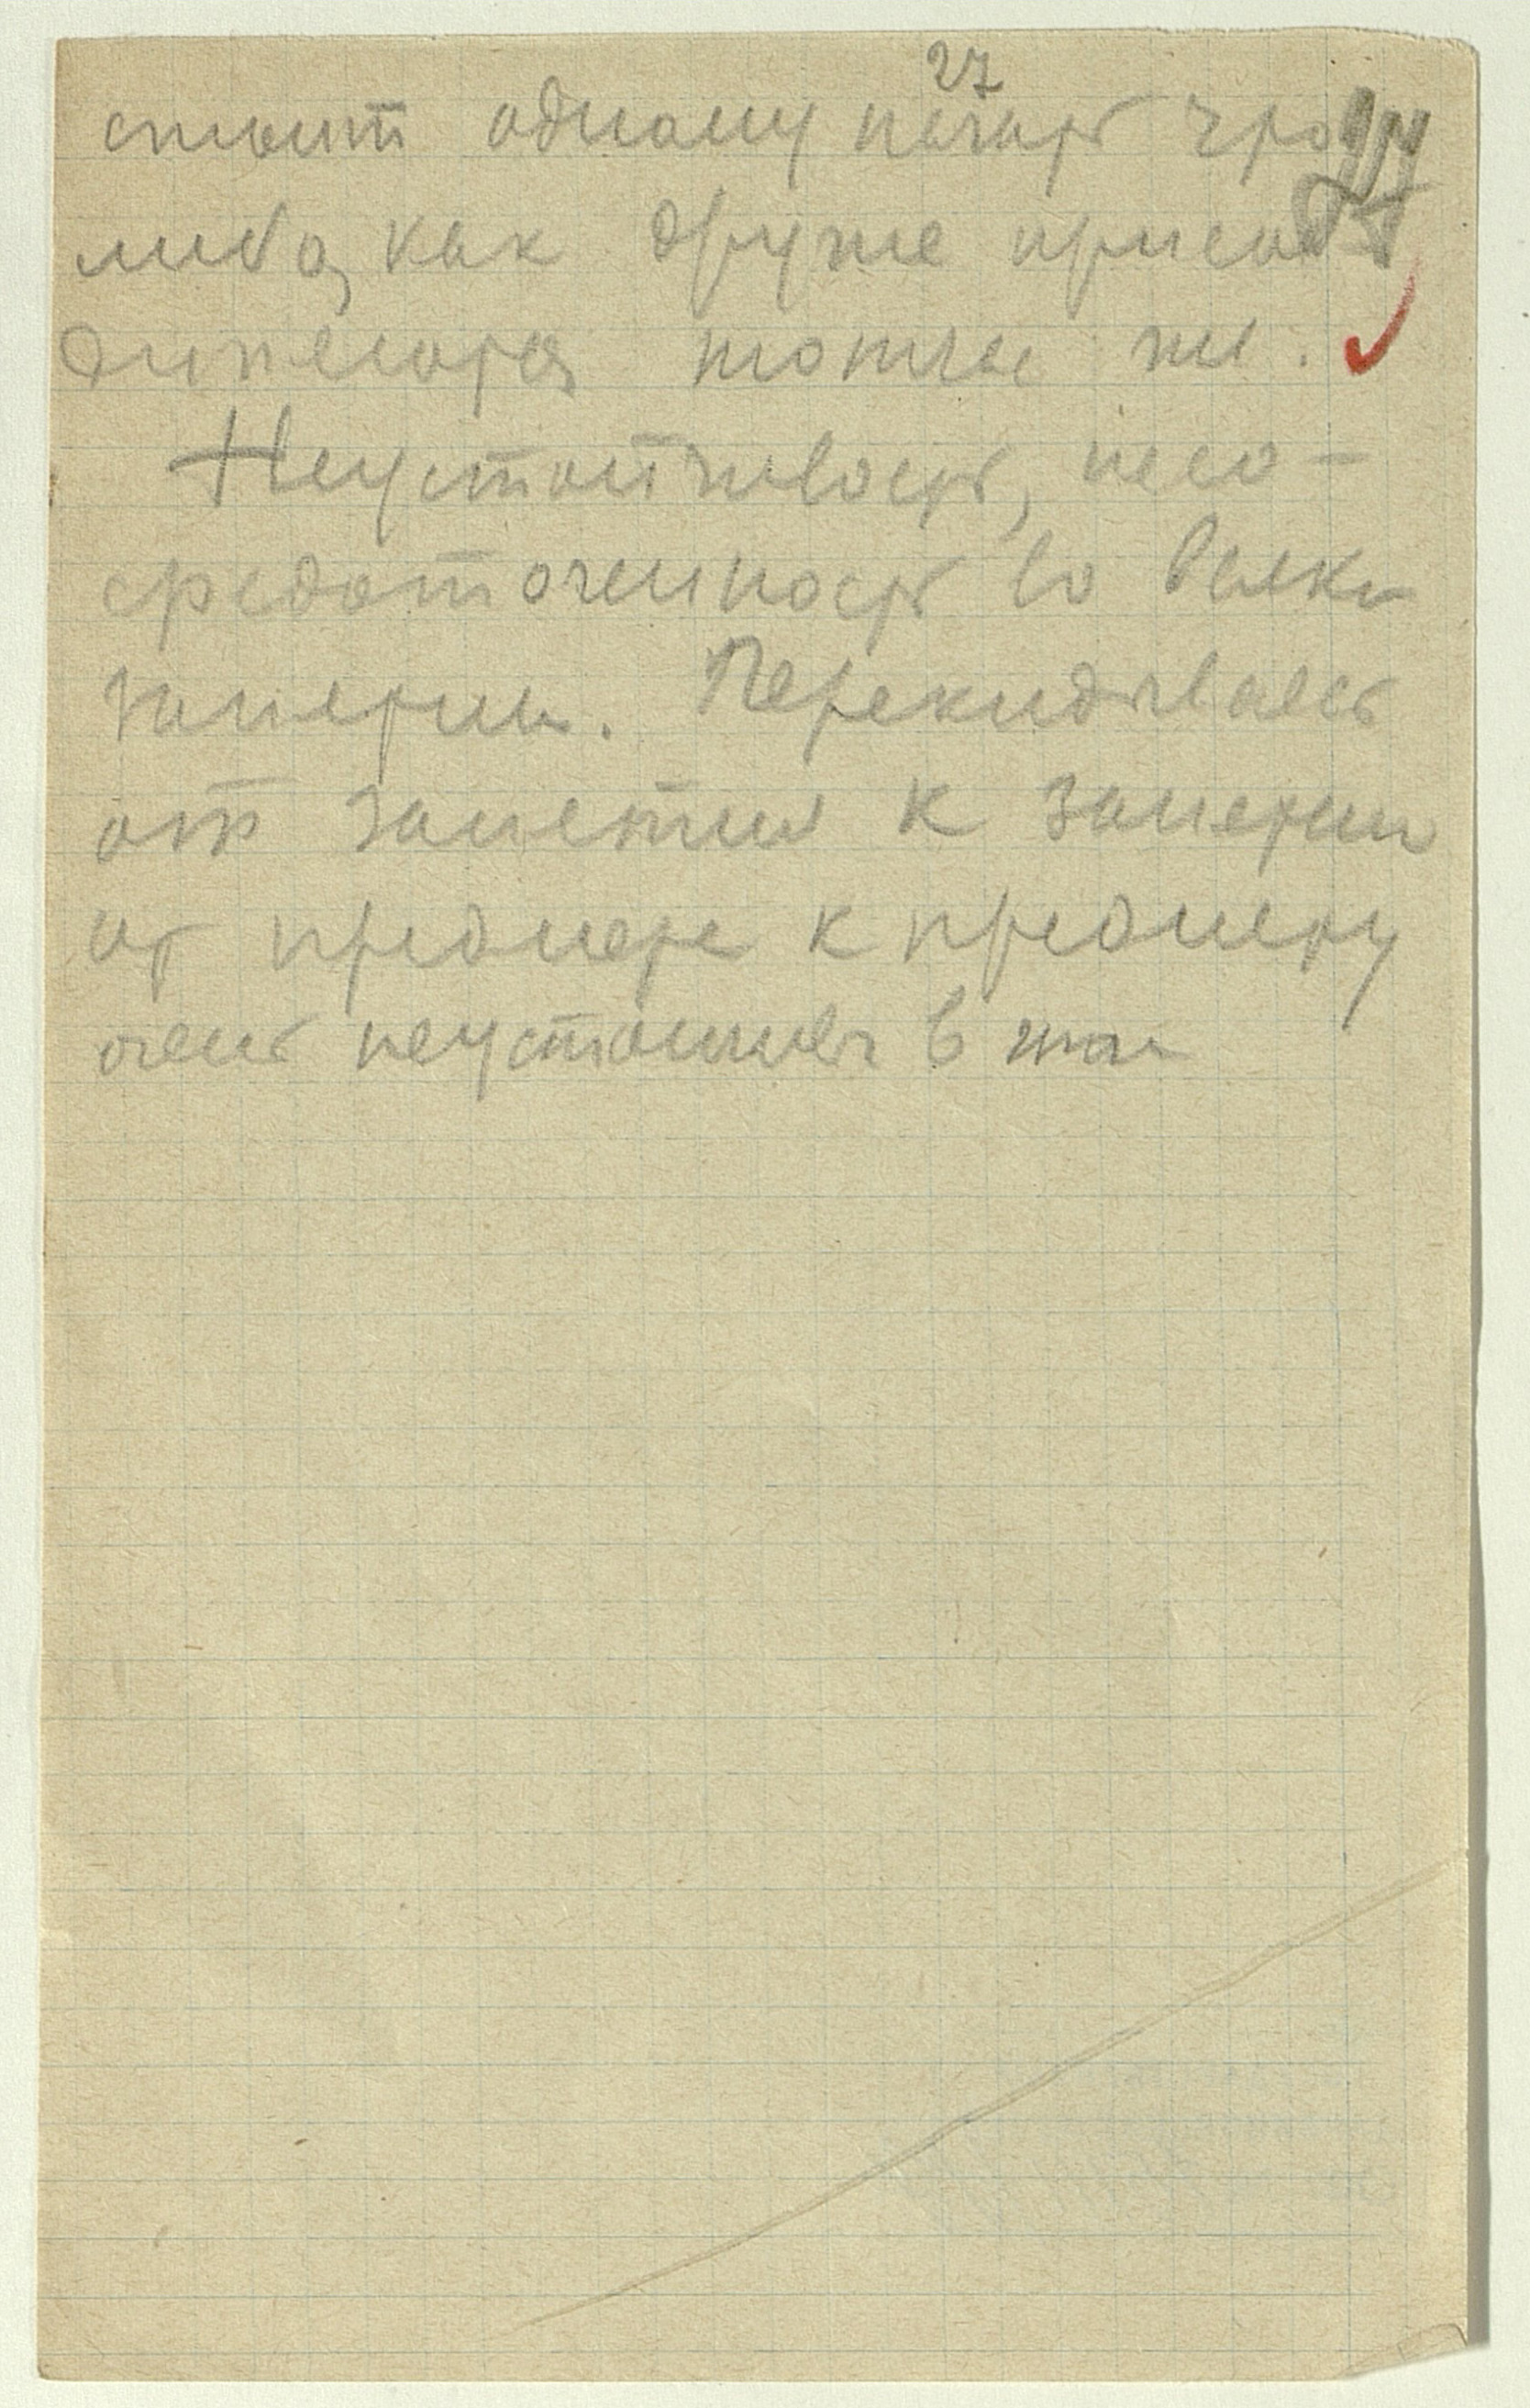 27
стоит одному начать что
либо, как другие присое
диняются тотчас же.
Неустойчивость, несо-
средоточенность во всяком
занятии. Перекидывались
от занятия к занятию
от предмета к предмету
очень неустойчивы в